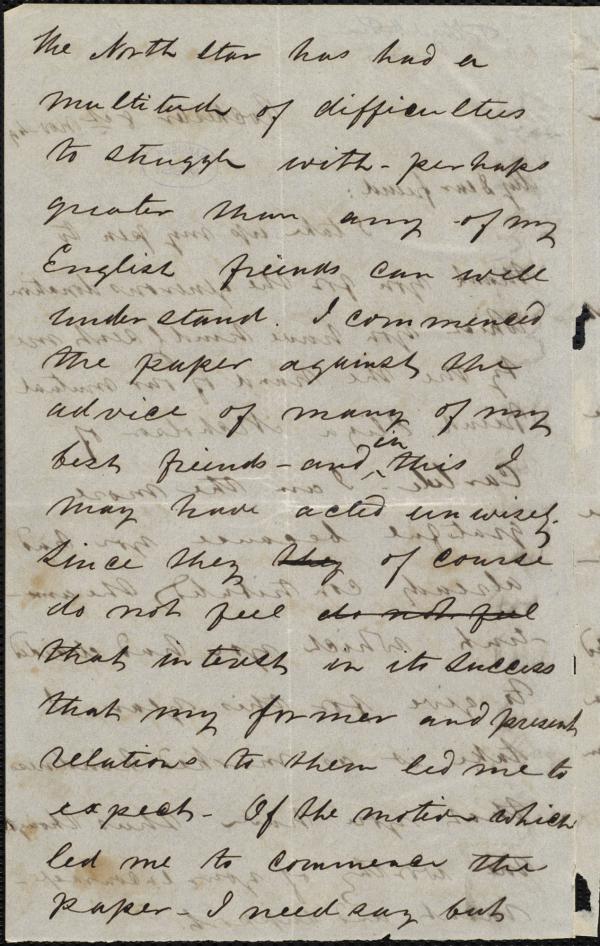 the North Star has had a
multitude of difficulties
to struggle with - perhaps
greater than any of my
English friends can well
understand. I commenced
the paper against the
advice of many of my
best friends - and in this I
may have acted unwisely.
Since they they of course
do not feel do not feel
that interest in its success
that my former and present
relations to them led me to
expect - Of the motive which
led me to commence the
paper - I need say but